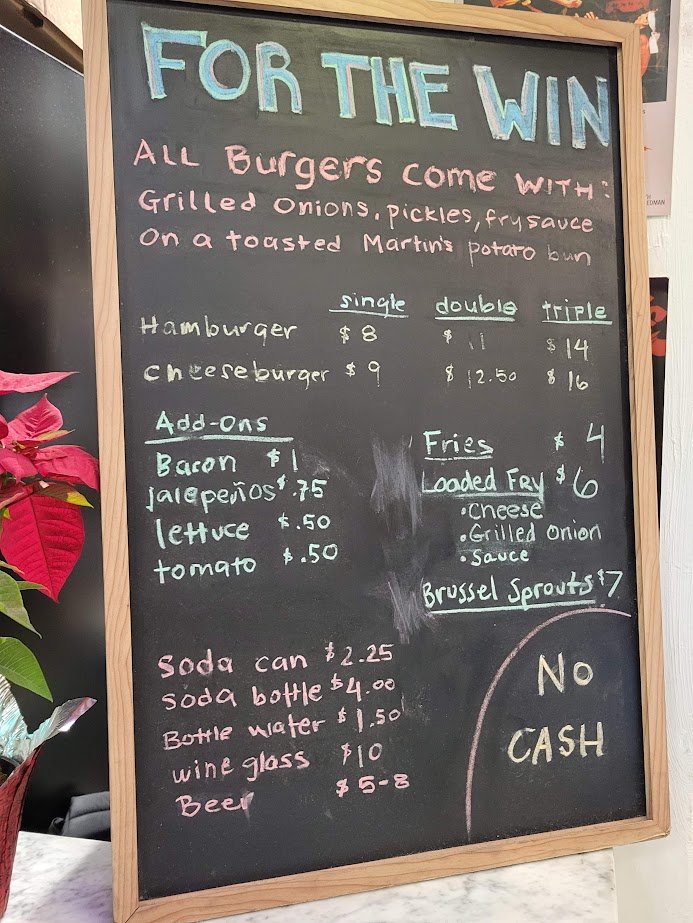 FOR THE WIN
ALL Burgers come WITH:
Grilled onions, pickles, fry sauce
On a toasted Martin's potato bun
single double triple
Hamburger $8 $11 $14
cheeseburger $9 $12.50 $16
Add-ons
Bacon $1
jalepeños $.75
lettuce $.50
tomato $.50
Fries $4
Loaded Fry $6
• Cheese
• Grilled onion
• Sauce
Brussel Sprouts $7
Soda can $2.25
soda bottle $4.00
Bottle water $1.50
wine glass $10
Beer $5-8
No
CASH